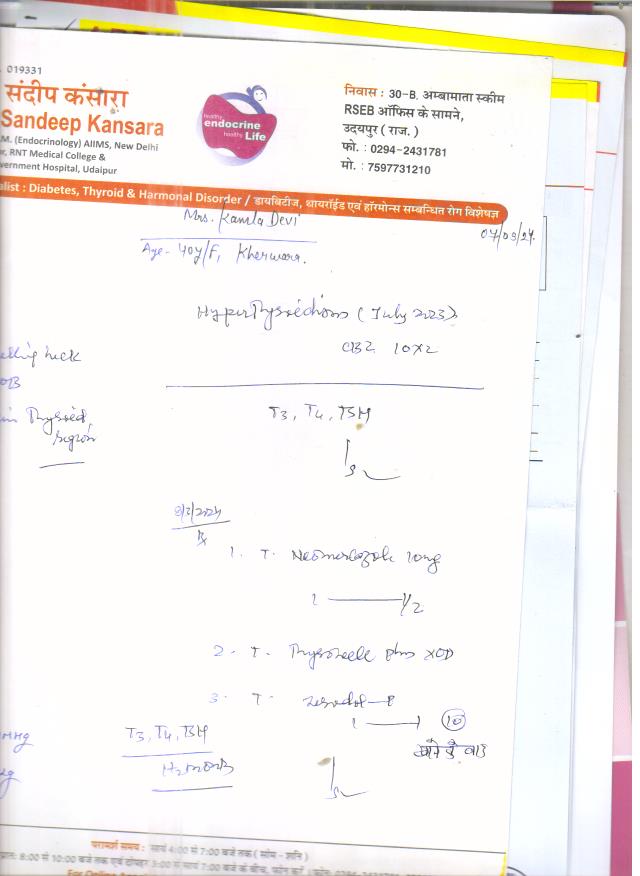 019331
संदीप कंसारा
Sandeep Kansara
.M. (Endocrinology) AIIMS, New Delhi
r, RNT Medical College &
vernment Hospital, Udaipur
healthy
endocrine
healthy Life
निवास : 30-B, अम्बामाता स्कीम
RSEB ऑफिस के सामने,
उदयपुर ( राज. )
फो. : 0294-2431781
मो. : 7597731210
alist : Diabetes, Thyroid & Harmonal Disorder / डायबिटीज, थायरॉईड एवं हॉरमोन्स सम्बन्धित रोग विशेषज्ञ
Mrs. Kamla Devi
Age - 40y/F, Kherwara.
(July 2023)
CBZ 10x2
neck
OB
T3, T4, TSH
Rx
1. T. Neomercazole long
1 1/2
2. T.
3. T. zerodol-P
1 1 10
T3, T4, TSH
2 months
खाने के बाद
परामर्श समय : सायं 4:00 से 7:00 बजे तक ( सोम - शनि )
प्रातः 8:00 से 10:00 बजे तक एवं दोपहर 3:00 से सायं 7:00 बजे के बीच, फोन करें